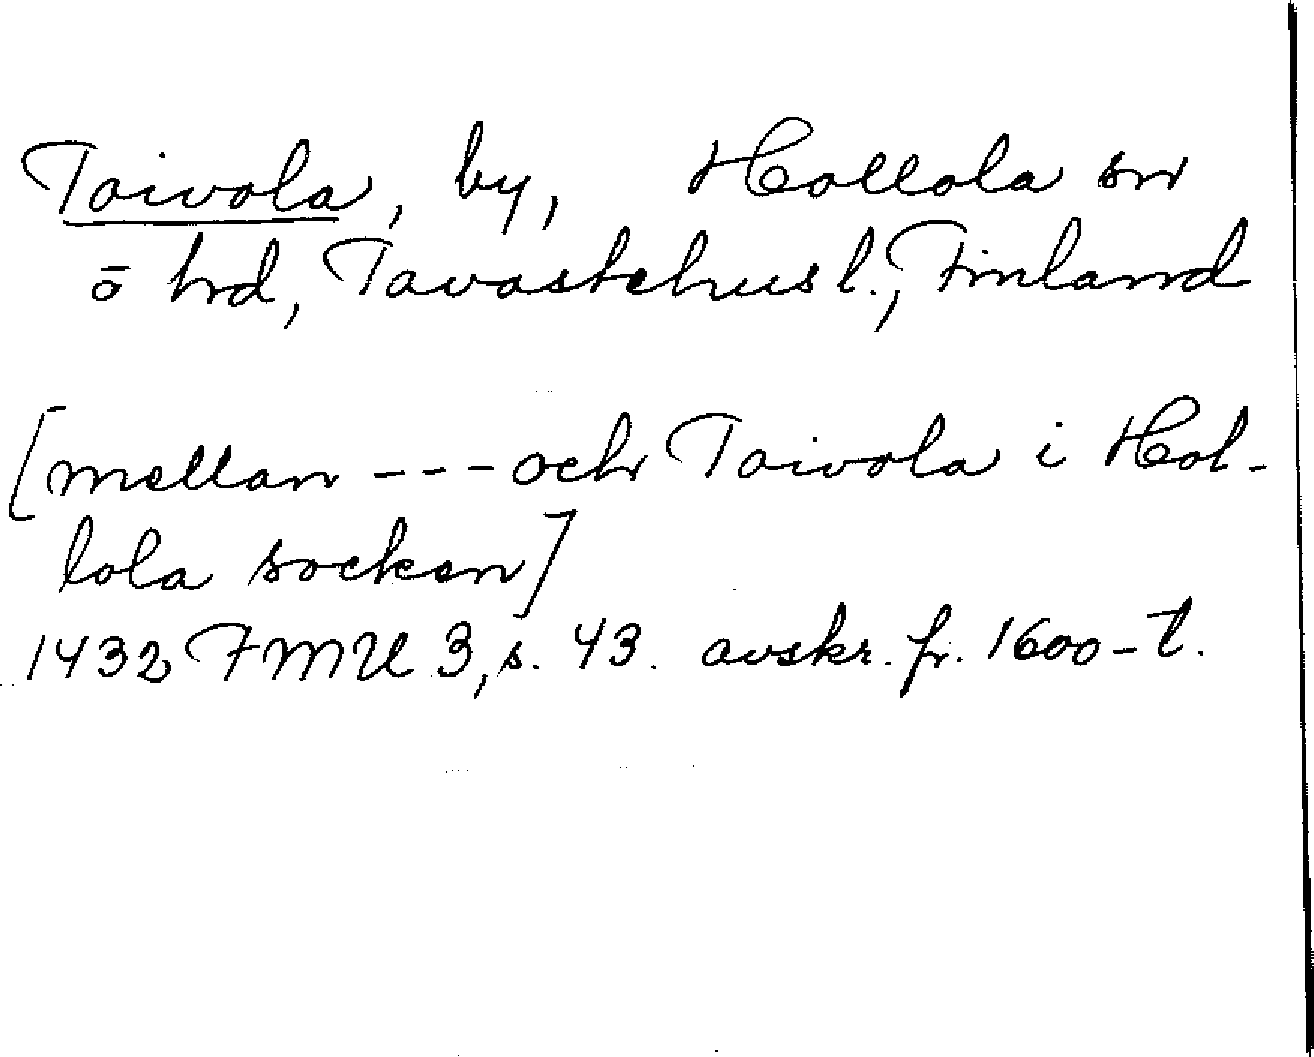 Toivola, by, Hollola sn
o hd, Tavastehus l., Finland
[mellan --- och Toivola i Hol-
lola socken]
1432 FMU 3, s. 43. avskr. fr. 1600-t.